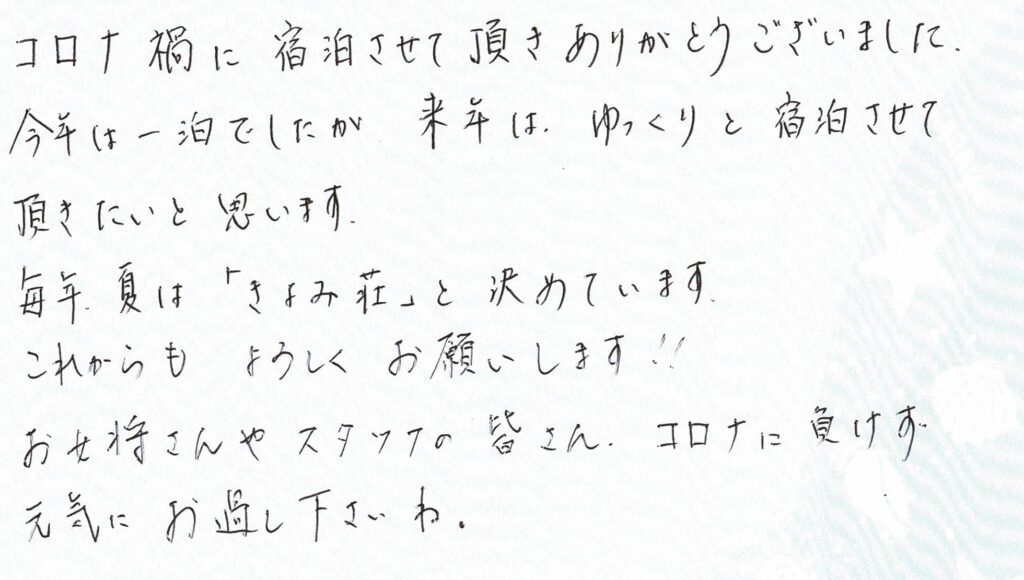 コロナ禍に宿泊させて頂きありがとうございました.
今年は一泊でしたが 来年は、ゆっくりと宿泊させて
頂きたいと思います.
毎年、夏は「きよみ荘」と決めています.
これからも よろしく お願いします!!
お女将さんやスタッフの皆さん、コロナに負けず
元気に お過し下さいね。